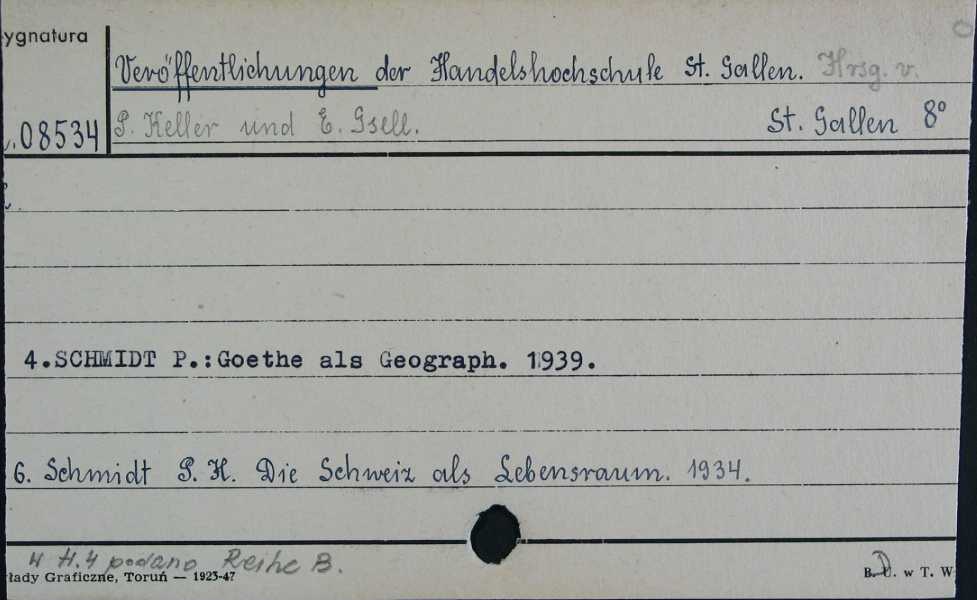 ygnatura
Veröffentlichungen der Handelshochschule St. Gallen. Hrsg. v.
08534 P. Keller und E. Gsell. St. Gallen 8°
4.SCHMIDT P.:Goethe als Geograph. 1939.
6. Schmidt P. H. Die Schweiz als Lebensraum. 1934.
4 H.4 podano Reihe B.
łady Graficzne, Toruń — 1923-47
B. U. w T. W